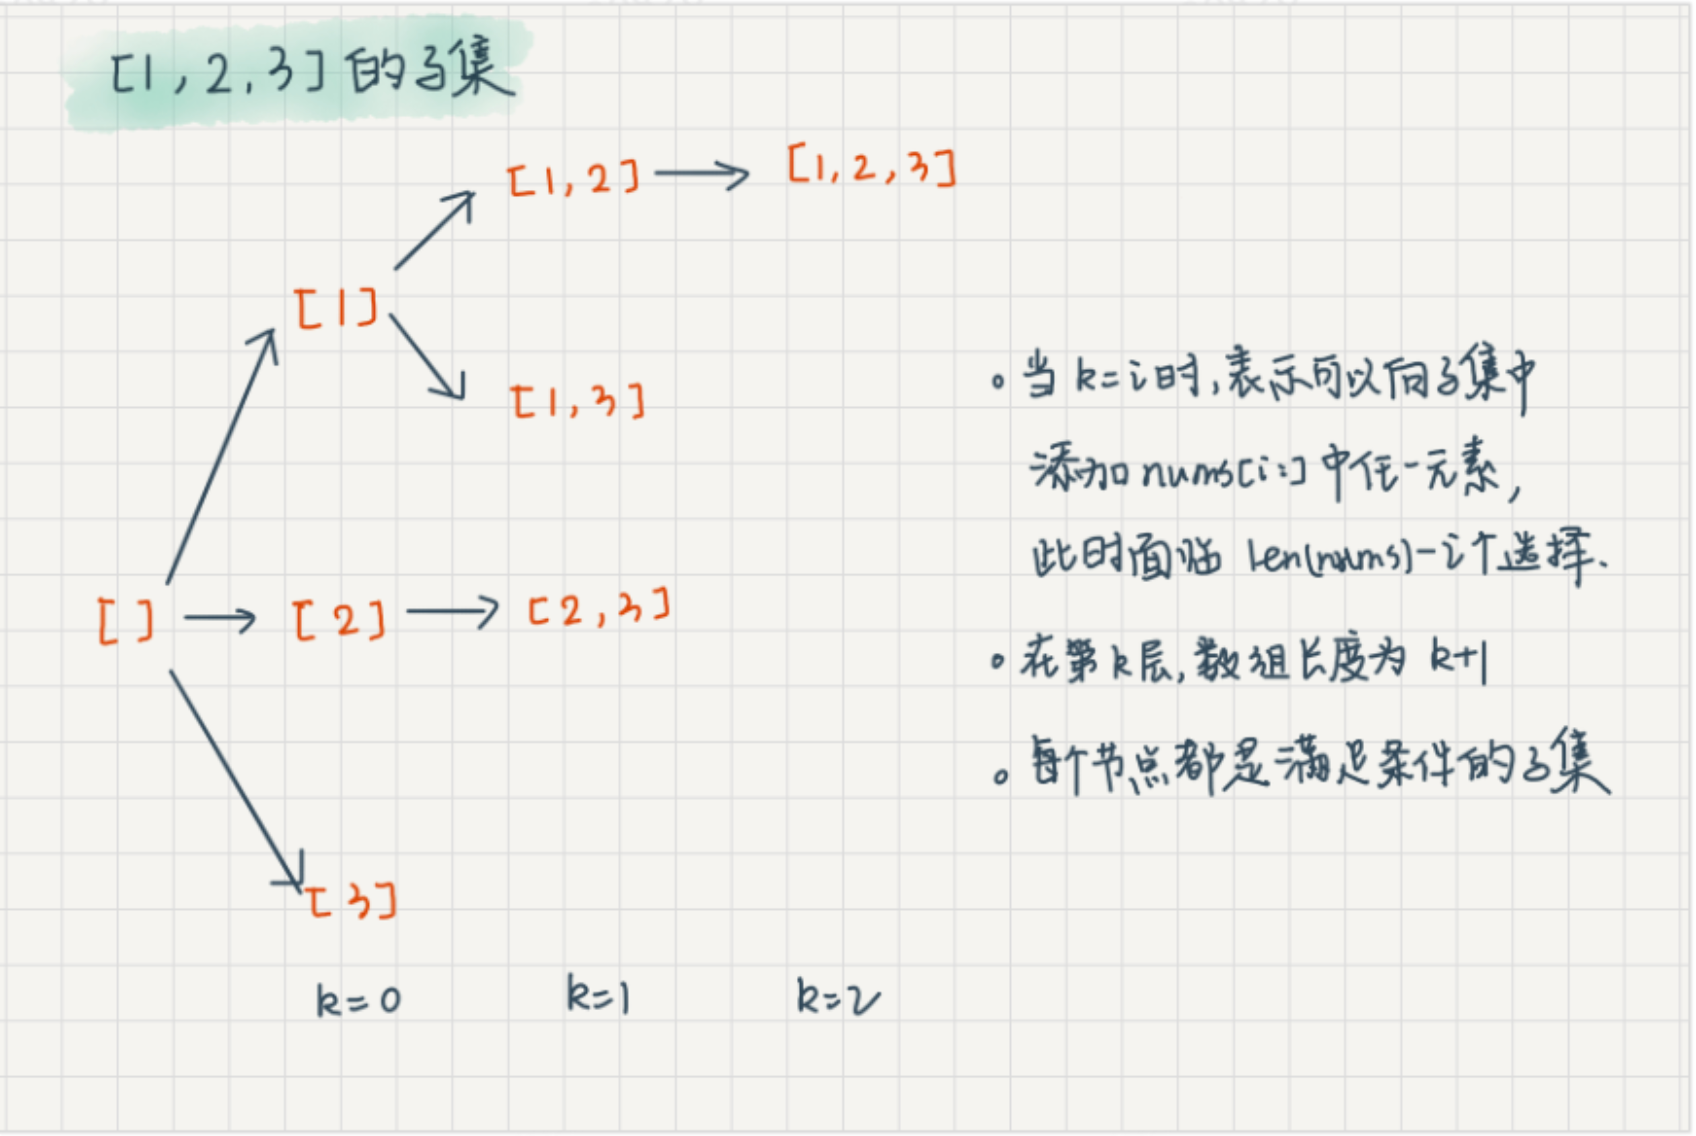 [1,2,3]的子集
[1,2]
[1,2,3]
[1]
[1,3]
[]
[2]
[2,3]
[3]
k=0
k=1
k=2
当k=i时,表示可以向子集中
添加nums[i:]中任一元素,
此时面临 len(nums)-i个选择.
在第k层,数组长度为 k+1
每个节点都是满足条件的子集